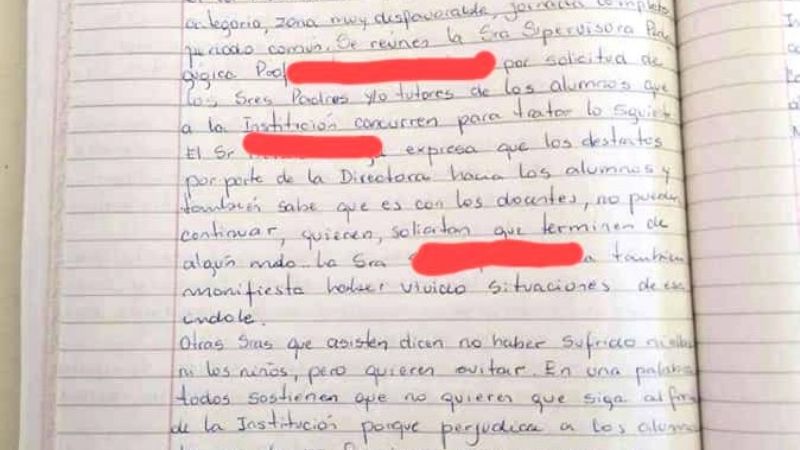 categoria, zona muy desfavorable, jornada completa
periodo común. Se reúnen la Sra Supervisora Peda
gógica Prof por solicitud de
los Sres Padres y/o tutores de los alumnos que
a la Institución concurren para tratar lo siguient
El Sr expresa que los destratos
por parte de la Directora hacia los alumnos y
también sabe que es con los docentes, no pueden
continuar, quieren, solicitan que terminen de
algún modo. La Sra a también
manifiesta haber vivido situaciones de esa
índole.
Otras Sras que asisten dicen no haber sufrido ni ellas
ni los niños, pero quieren evitar. En una palabra
todos sostienen que no quieren que siga al fren
de la Institución porque perjudica a los alum